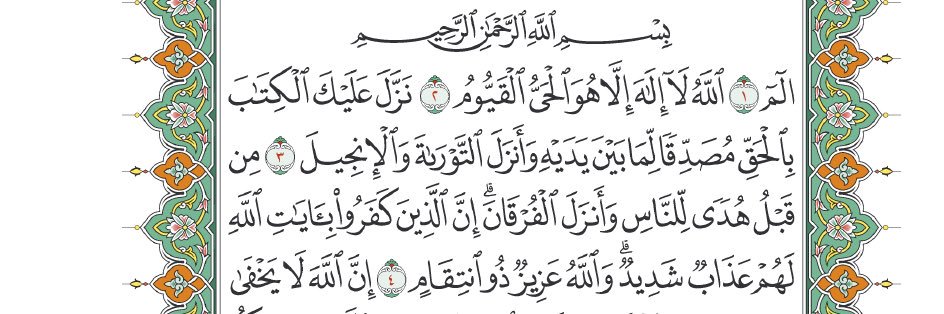 بِسْمِ ٱللَّهِ ٱلرَّحْمَٰنِ ٱلرَّحِيمِ
الٓمٓ ١ ٱللَّهُ لَآ إِلَٰهَ إِلَّا هُوَ ٱلْحَىُّ ٱلْقَيُّومُ ٢ نَزَّلَ عَلَيْكَ ٱلْكِتَٰبَ
بِٱلْحَقِّ مُصَدِّقًا لِّمَا بَيْنَ يَدَيْهِ وَأَنزَلَ ٱلتَّوْرَىٰةَ وَٱلْإِنجِيلَ ٣ مِن
قَبْلُ هُدًى لِّلنَّاسِ وَأَنزَلَ ٱلْفُرْقَانَ ۗ إِنَّ ٱلَّذِينَ كَفَرُوا۟ بِـَٔايَٰتِ ٱللَّهِ
لَهُمْ عَذَابٌ شَدِيدٌ ۗ وَٱللَّهُ عَزِيزٌ ذُو ٱنتِقَامٍ ٤ إِنَّ ٱللَّهَ لَا يَخْفَىٰ